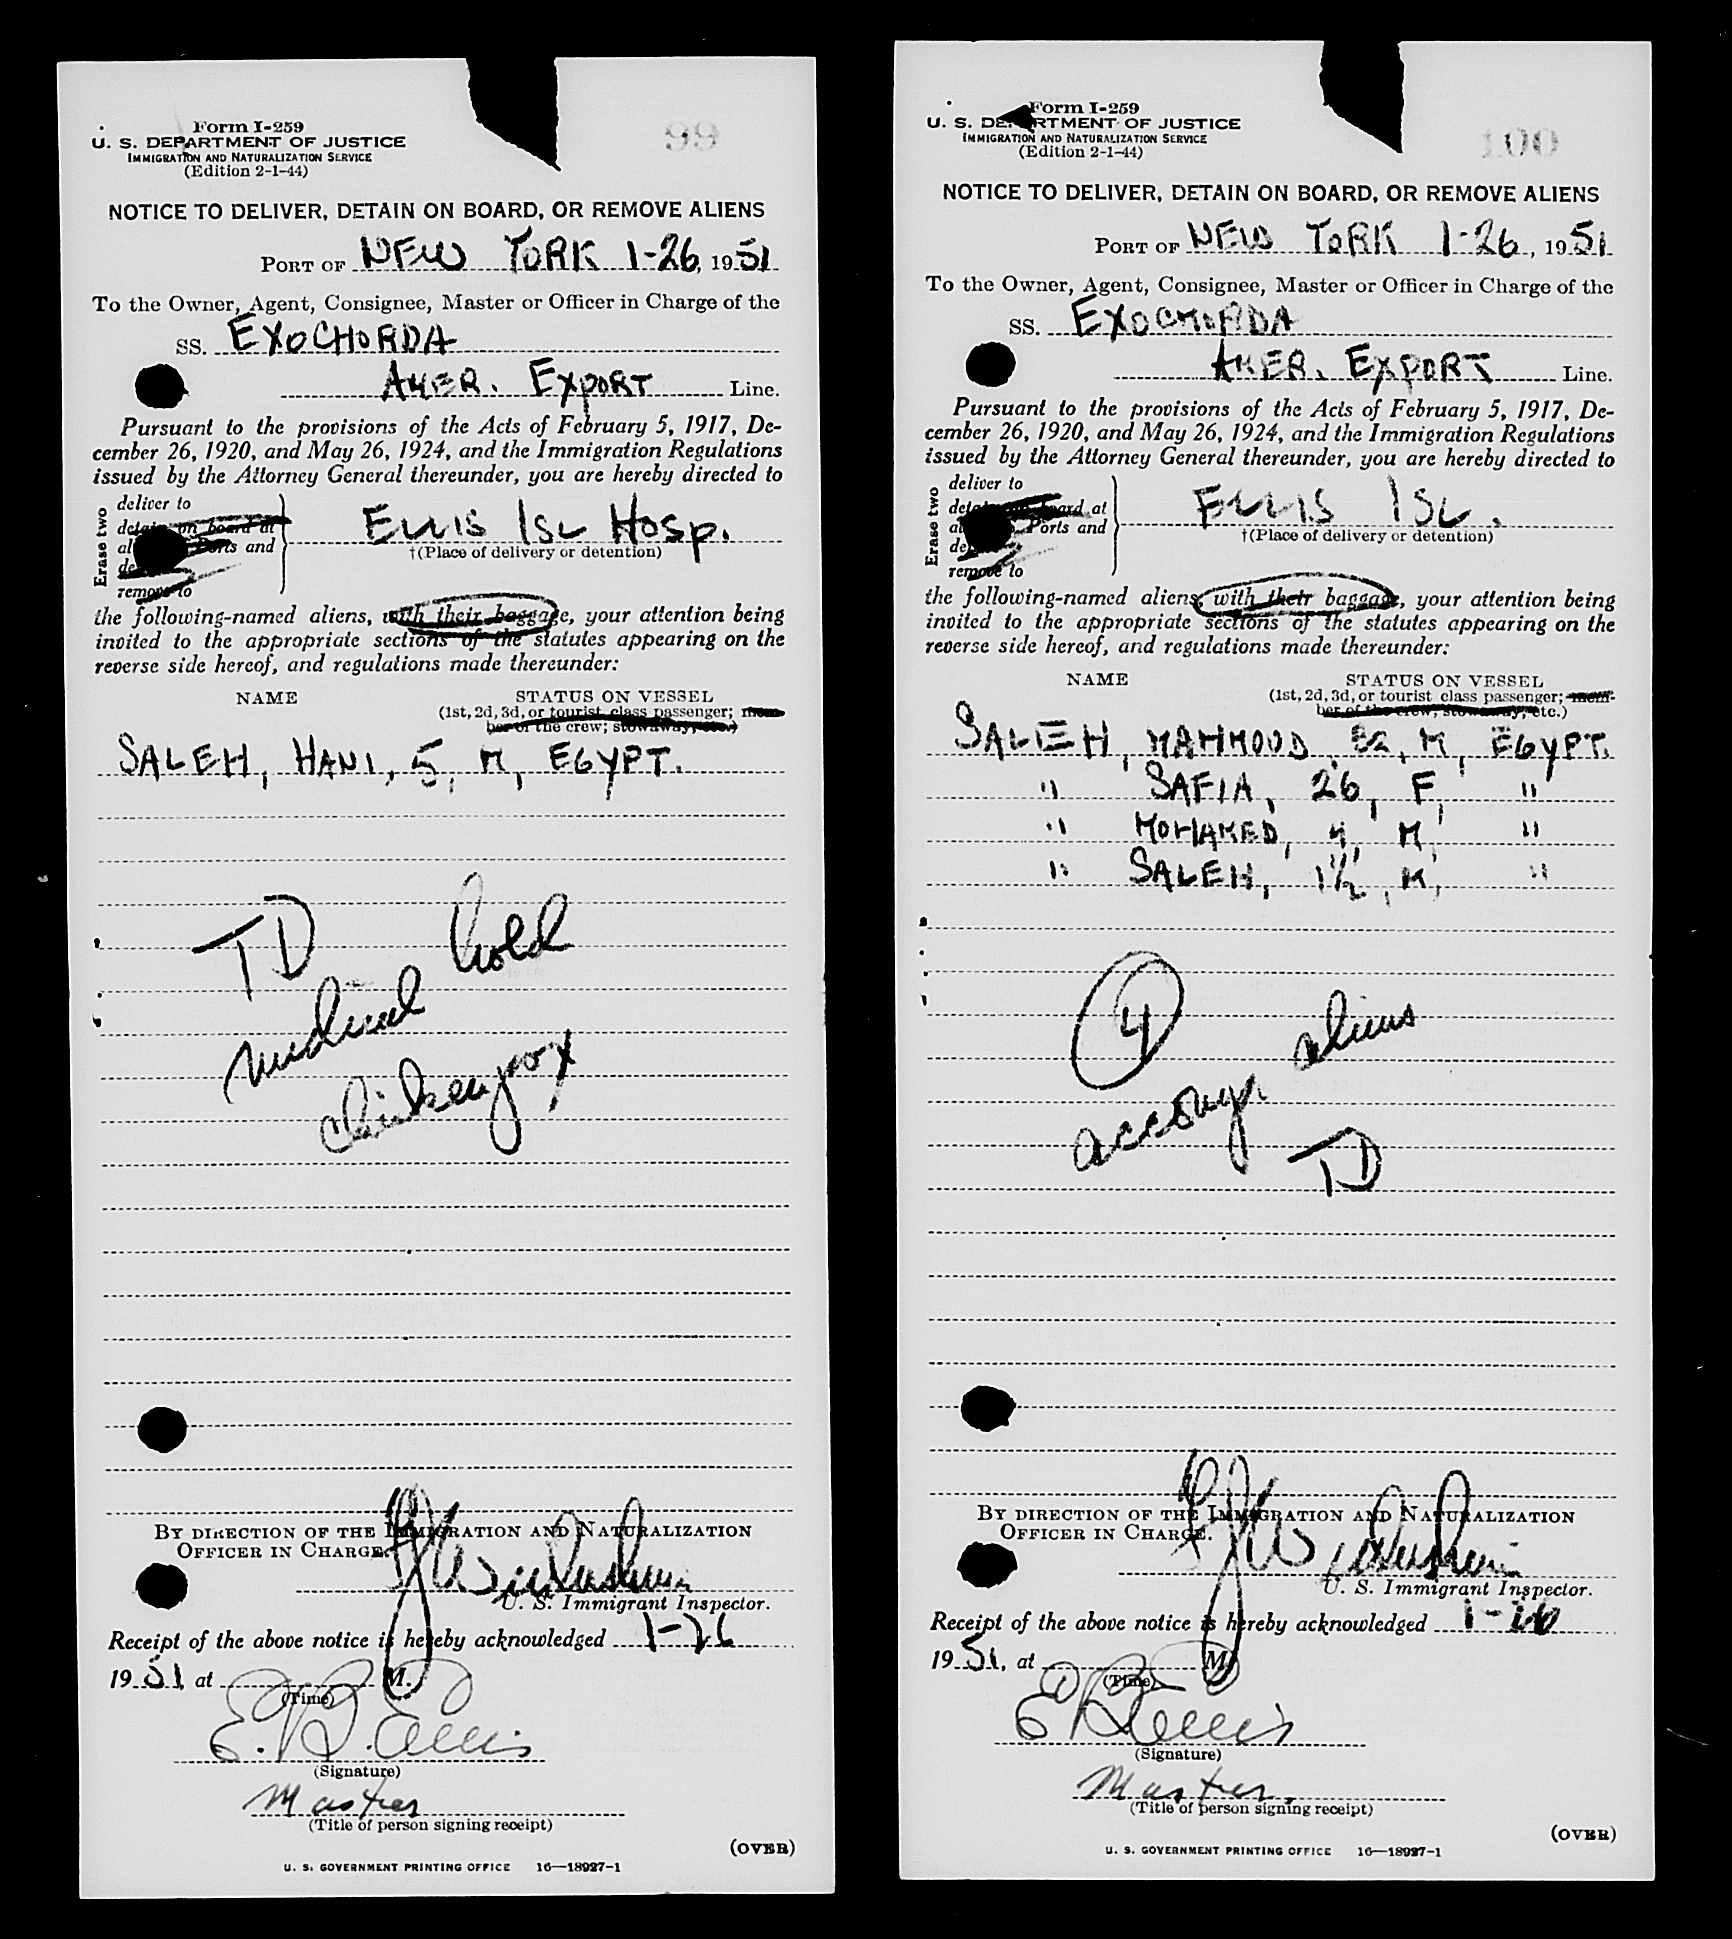 Form I-259
U. S. DEPARTMENT OF JUSTICE
IMMIGRATION AND NATURALIZATION SERVICE
(Edition 2-1-44)
99
NOTICE TO DELIVER, DETAIN ON BOARD, OR REMOVE ALIENS
PORT OF NEW YORK 1-26, 1951
To the Owner, Agent, Consignee, Master or Officer in Charge of the
SS. EXOCHORDA
AMER. EXPORT Line.
Pursuant to the provisions of the Acts of February 5, 1917, De-
cember 26, 1920, and May 26, 1924, and the Immigration Regulations
issued by the Attorney General thereunder, you are hereby directed to
Erase two
deliver to
detain on board at
Ports and
remove to
ELLIS ISL HOSP.
†(Place of delivery or detention)
the following-named aliens, with their baggage, your attention being
invited to the appropriate sections of the statutes appearing on the
reverse side hereof, and regulations made thereunder:
NAME STATUS ON VESSEL
(1st, 2d, 3d, or tourist class passenger; mem-
ber of the crew; stowaway, etc.)
SALEH, HANI, 5, M, EGYPT.
TD hold
medical
chickenpox
BY DIRECTION OF THE IMMIGRATION AND NATURALIZATION
OFFICER IN CHARGE.
U. S. Immigrant Inspector.
Receipt of the above notice is hereby acknowledged 1-26
1951, at M.
(Time)
E. B. Ellis
(Signature)
Master
(Title of person signing receipt)
(OVER)
U. S. GOVERNMENT PRINTING OFFICE 16—18927-1
Form I-259
U. S. DEPARTMENT OF JUSTICE
IMMIGRATION AND NATURALIZATION SERVICE
(Edition 2-1-44)
100
NOTICE TO DELIVER, DETAIN ON BOARD, OR REMOVE ALIENS
PORT OF NEW YORK 1-26, 1951
To the Owner, Agent, Consignee, Master or Officer in Charge of the
SS. EXOCHORDA
AMER. EXPORT Line.
Pursuant to the provisions of the Acts of February 5, 1917, De-
cember 26, 1920, and May 26, 1924, and the Immigration Regulations
issued by the Attorney General thereunder, you are hereby directed to
Erase two
deliver to
detain on board at
Ports and
remove to
ELLIS ISL.
†(Place of delivery or detention)
the following-named aliens, with their baggage, your attention being
invited to the appropriate sections of the statutes appearing on the
reverse side hereof, and regulations made thereunder:
NAME STATUS ON VESSEL
(1st, 2d, 3d, or tourist class passenger; mem-
ber of the crew, stowaway, etc.)
SALEH, MAHMOUD, 32, M, EGYPT.
" SAFIA, 26, F, "
" MOHAMED, 4, M, "
" SALEH, 1½, M, "
4 aliens
accomp.
TD
BY DIRECTION OF THE IMMIGRATION AND NATURALIZATION
OFFICER IN CHARGE.
U. S. Immigrant Inspector.
Receipt of the above notice is hereby acknowledged 1-26
1951, at M.
(Time)
E B Ellis
(Signature)
Master.
(Title of person signing receipt)
(OVER)
U. S. GOVERNMENT PRINTING OFFICE 16—18927-1